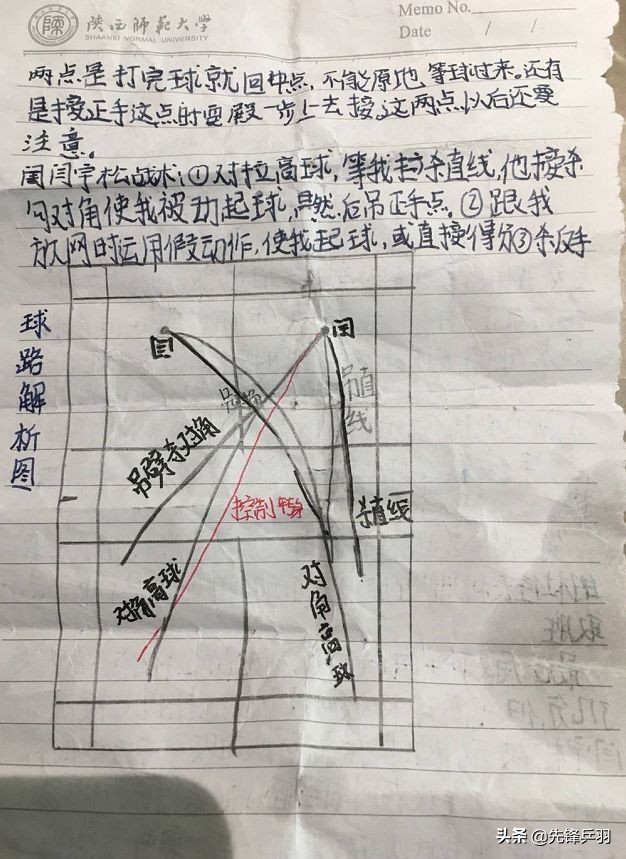 陕西师范大学
SHAANXI NORMAL UNIVERSITY
Memo No.
Date / /
两点是打完球就回中点,不能原地等球过来。还有
是接正手这点时要蹬一步上去接,这两点以后还要
注意。
闫宇松战术:①对拉高球,等我扣杀直线,他接杀
勾对角使我被动起球,然后吊正手点。②跟我
放网时运用假动作,使我起球,或直接得分③杀反手
球路解析图
闫
闫
吊直线
吊劈杀对角
控制转身
杀直线
对角高球
对角高球
头条 @先锋乒羽